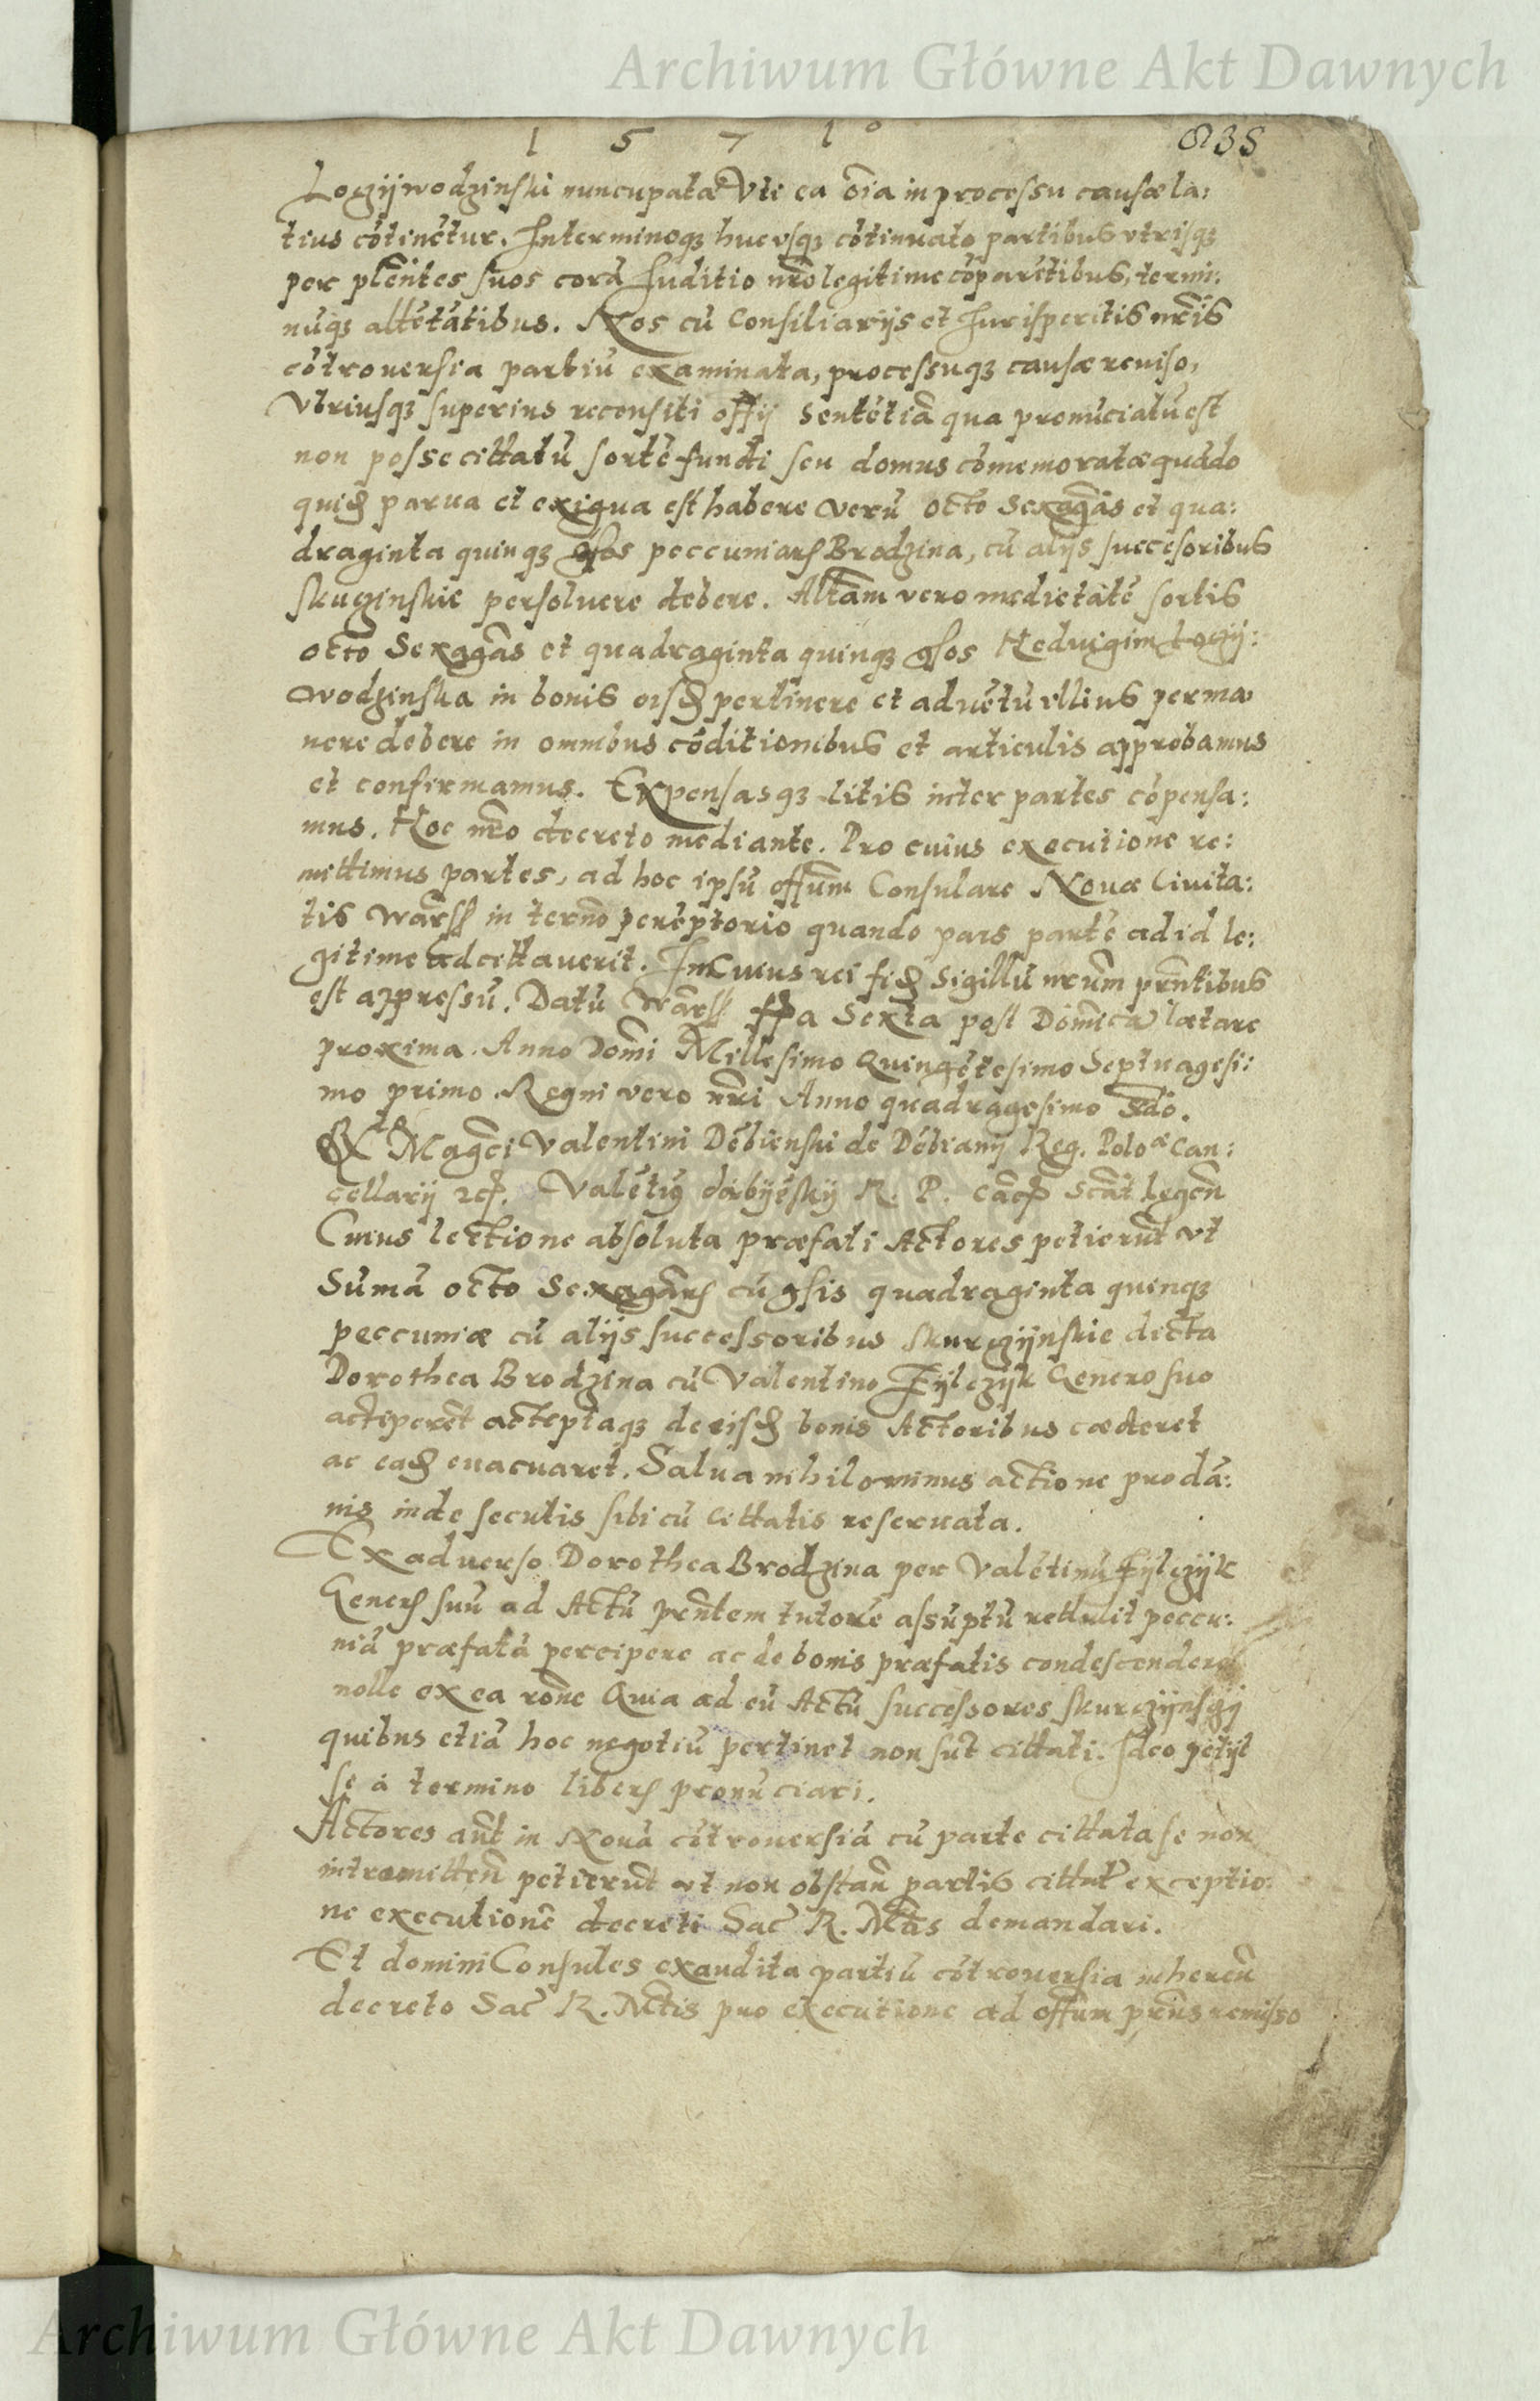 Archiwum Główne Akt Dawnych
1 5 7 1° 835
Logyijwodzinski nuncupatæ Vti ea õia in processu causæ la:
tius cõtinẽtur. In terminoqʒ hucvsqʒ cõtinuato partibus vtrisqʒ
per plẽntes suos corã Iuditio nr̃o legitime cõparẽtibus, termi:
nuqʒ attẽtãtibus. Nos cũ Consiliarijs et Iurisperitis nr̃is
cõtrouersia partiũ examinata, processuqʒ causæ reuiso,
Vtriusqʒ superius recensiti offij Sentẽtiã qua pronũciatũ est
non posse cittatũ sortẽ fundi seu domus cõmemoratæ quãdo
quid parua et exigua est habere verũ octo Sexagãs et qua:
draginta quinqʒ gsos peccuniarũ Brodzina, cũ alijs succesoribus
skuzinskie persoluere debere. Altãm vero medietatẽ sortis
octo Sexagãs et quadraginta quinqʒ gsos Heduigim Logij:
wodzinska in bonis eisd pertinere et aduẽtũ illius perma
nere debere in omnibus cõditionibus et articulis approbamus
et confirmamus. Expensasqʒ litis inter partes cõpensa:
mus. Hoc nr̃o decreto mediante. Pro cuius executione re:
mittimus partes, ad hoc ipsũ offũm Consulare Nouæ Ciuita:
tis Warss in termõ perẽptorio quando pars partẽ ad id le:
gitime adcittauerit. In Cuius rei fid Sigillũ nr̃um pr̃ntibus
est appressũ. Datũ Warss ffa Sexta post Domĩcã lætare
proxima. Anno Domĩ Millesimo Quingẽtesimo Septuagesi:
mo primo. Regni vero nr̃i Anno quadragesimo Sc̃do.
Rtõ Magc̃i Valentini Dẽbienski de Dẽbiany Reg. Poloæ Can:
cellarij etc. Valẽtiꝰ dãbyẽskij R. P. Canc̃ Sc̃at legẽn
Cuius lectione absoluta præfati Actores petierũt vt
Sumã octo Sexagãrũ cũ gsis quadraginta quinqʒ
peccuniæ cũ alijs successoribus skurczijnskie dicta
Dorothea Brodzina cũ Valentino Fylczyk Genero suo
acciperẽt acceptaqʒ de eisd bonis Actoribus cæderet
ac ead euacuaret. Salua nihilominus actione pro dã:
nis inde secutis sibi cũ cittatis reseruata.
Ex aduerso Dorothea Brodzina per Valẽtinũ Fylczyk
Generũ suũ ad Actũ pr̃ntem tutorẽ assũptũ rettulit peccu:
niã præfatã percipere ac de bonis præfatis condescendere
nolle ex ea rõne Quia ad eũ Actũ successores skurczijnsczy
quibus etiã hoc negotiũ pertinet non sũt cittati. Ideo petijt
se á termino liberũ pronũciari.
Actores aũt in Nouã cõtrouersiã cũ parte cittata se non
intromittẽn petierũt vt non obstañ partis cittatæ exceptio:
ne executionẽ decreti Sac̃ R. Mtis demandari.
Et domini Consules exaudita partiũ cõtrouersia inherẽn
decreto Sac̃ R. Mtis pro executione ad offũm pr̃ns remisso
Archiwum Główne Akt Dawnych